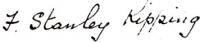 F. Stanley Kipping